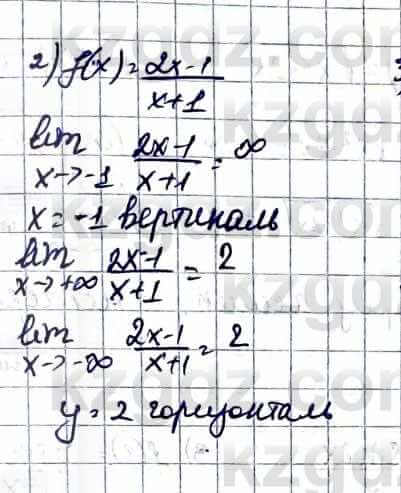 2) f(x) = 2x-1 / x+1
lim x→-1 2x-1 / x+1 = ∞
x = -1 вертикаль
lim x→+∞ 2x-1 / x+1 = 2
lim x→-∞ 2x-1 / x+1 = 2
y = 2 горизонталь